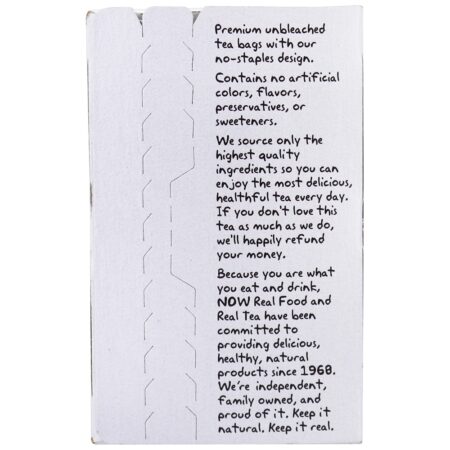 Premium unbleached
tea bags with our
no-staples design.
Contains no artificial
colors, flavors,
preservatives, or
sweeteners.
We source only the
highest quality
ingredients so you can
enjoy the most delicious,
healthful tea every day.
If you don't love this
tea as much as we do,
we'll happily refund
your money.
Because you are what
you eat and drink,
NOW Real Food and
Real Tea have been
committed to
providing delicious,
healthy, natural
products since 1968.
We're independent,
family owned, and
proud of it. Keep it
natural. Keep it real.